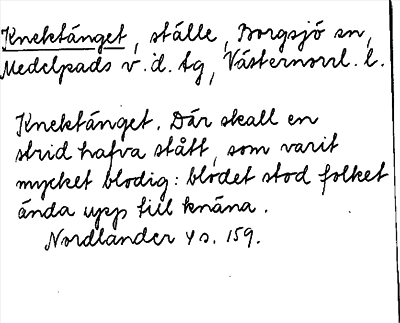 Knektänget, ställe, Borgsjö sn,
Medelpads v. d. tg, Västernorrl. l.
Knektänget. Där skall en
strid hafva stått, som varit
mycket blodig: blodet stod folket
ända upp till knäna.
Nordlander 4 s. 159.